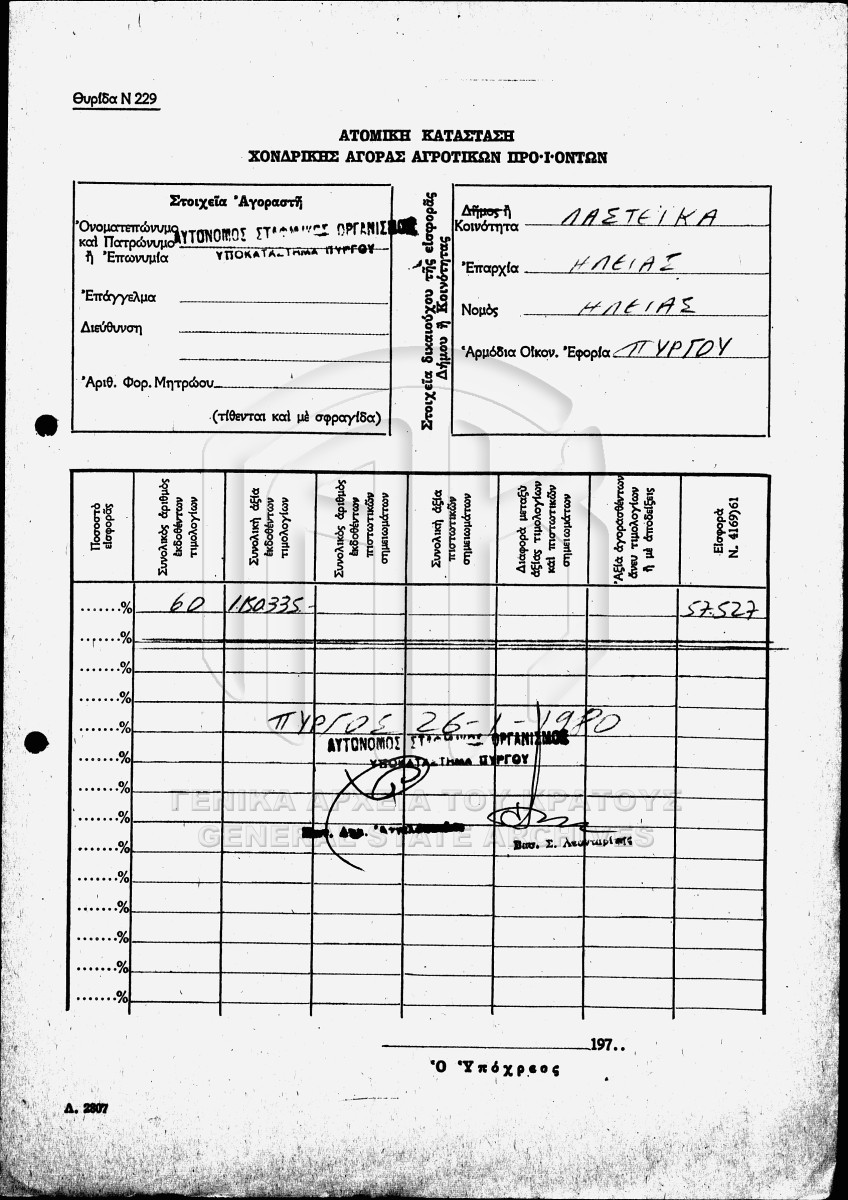 Θυρίδα Ν 229
ΑΤΟΜΙΚΗ ΚΑΤΑΣΤΑΣΗ
ΧΟΝΔΡΙΚΗΣ ΑΓΟΡΑΣ ΑΓΡΟΤΙΚΩΝ ΠΡΟ·Ι·ΟΝΤΩΝ
Στοιχεῖα Ἀγοραστῆ
Ὀνοματεπώνυμο
καὶ Πατρώνυμο
ἤ Ἐπωνυμία
ΑΥΤΟΝΟΜΟΣ ΣΤΑΦΙΔΙΚΟΣ ΟΡΓΑΝΙΣΜΟΣ
ΥΠΟΚΑΤΑΣΤΗΜΑ ΠΥΡΓΟΥ
Ἐπάγγελμα
Διεύθυνση
Ἀριθ. Φορ. Μητρώου
(τίθενται καὶ μὲ σφραγίδα)
Στοιχεῖα δικαιούχου τῆς εἰσφορᾶς
Δήμου ἤ Κοινότητας
Δῆμος ἤ
Κοινότητα ΛΑΣΤΕΪΚΑ
Ἐπαρχία ΗΛΕΙΑΣ
Νομὸς ΗΛΕΙΑΣ
Ἁρμόδια Οἰκον. Ἐφορία ΠΥΡΓΟΥ
Ποσοστὸ
εἰσφορᾶς
Συνολικὸς ἀριθμὸς
ἐκδοθέντων
τιμολογίων
Συνολικὴ ἀξία
ἐκδοθέντων
τιμολογίων
Συνολικὸς ἀριθμὸς
ἐκδοθέντων
πιστωτικῶν
σημειωμάτων
Συνολικὴ ἀξία
πιστωτικῶν
σημειωμάτων
Διαφορὰ μεταξὺ
ἀξίας τιμολογίων
καὶ πιστωτικῶν
σημειωμάτων
Ἀξία ἀγορασθέντων
ἄνευ τιμολογίων
ἤ μὲ ἀποδείξεις
Εἰσφορὰ
Ν. 4169)61
.......% 60 1.150.335.- 57.527
.......%
.......%
.......%
.......%
ΠΥΡΓΟΣ 26-1-1980
ΑΥΤΟΝΟΜΟΣ ΣΤΑΦΙΔΙΚΟΣ ΟΡΓΑΝΙΣΜΟΣ
.......%
ΥΠΟΚΑΤΑΣΤΗΜΑ ΠΥΡΓΟΥ
.......%
ΓΕΝΙΚΑ ΑΡΧΕΙΑ ΤΟΥ ΚΡΑΤΟΥΣ
.......%
GENERAL STATE ARCHIVES
.......%
.......%
.......%
.......%
.......%
.......%
197..
Ὁ Ὑπόχρεος
Δ. 2807